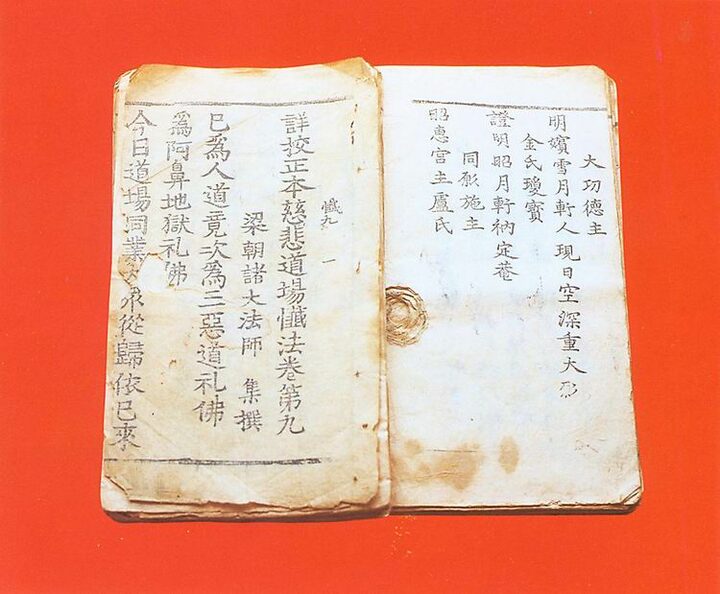 大功德主
明嬪雪月軒人現日空深重大
金氏瓊寶
證明昭月軒衲定菴
同施主
昭惠宮主盧氏
懴九 一
詳校正本慈悲道場懴法卷第九
梁朝諸大法師 集撰
已為人道竟次為三惡道礼佛
為阿鼻地獄礼佛
今日道場同業大衆從歸依已來